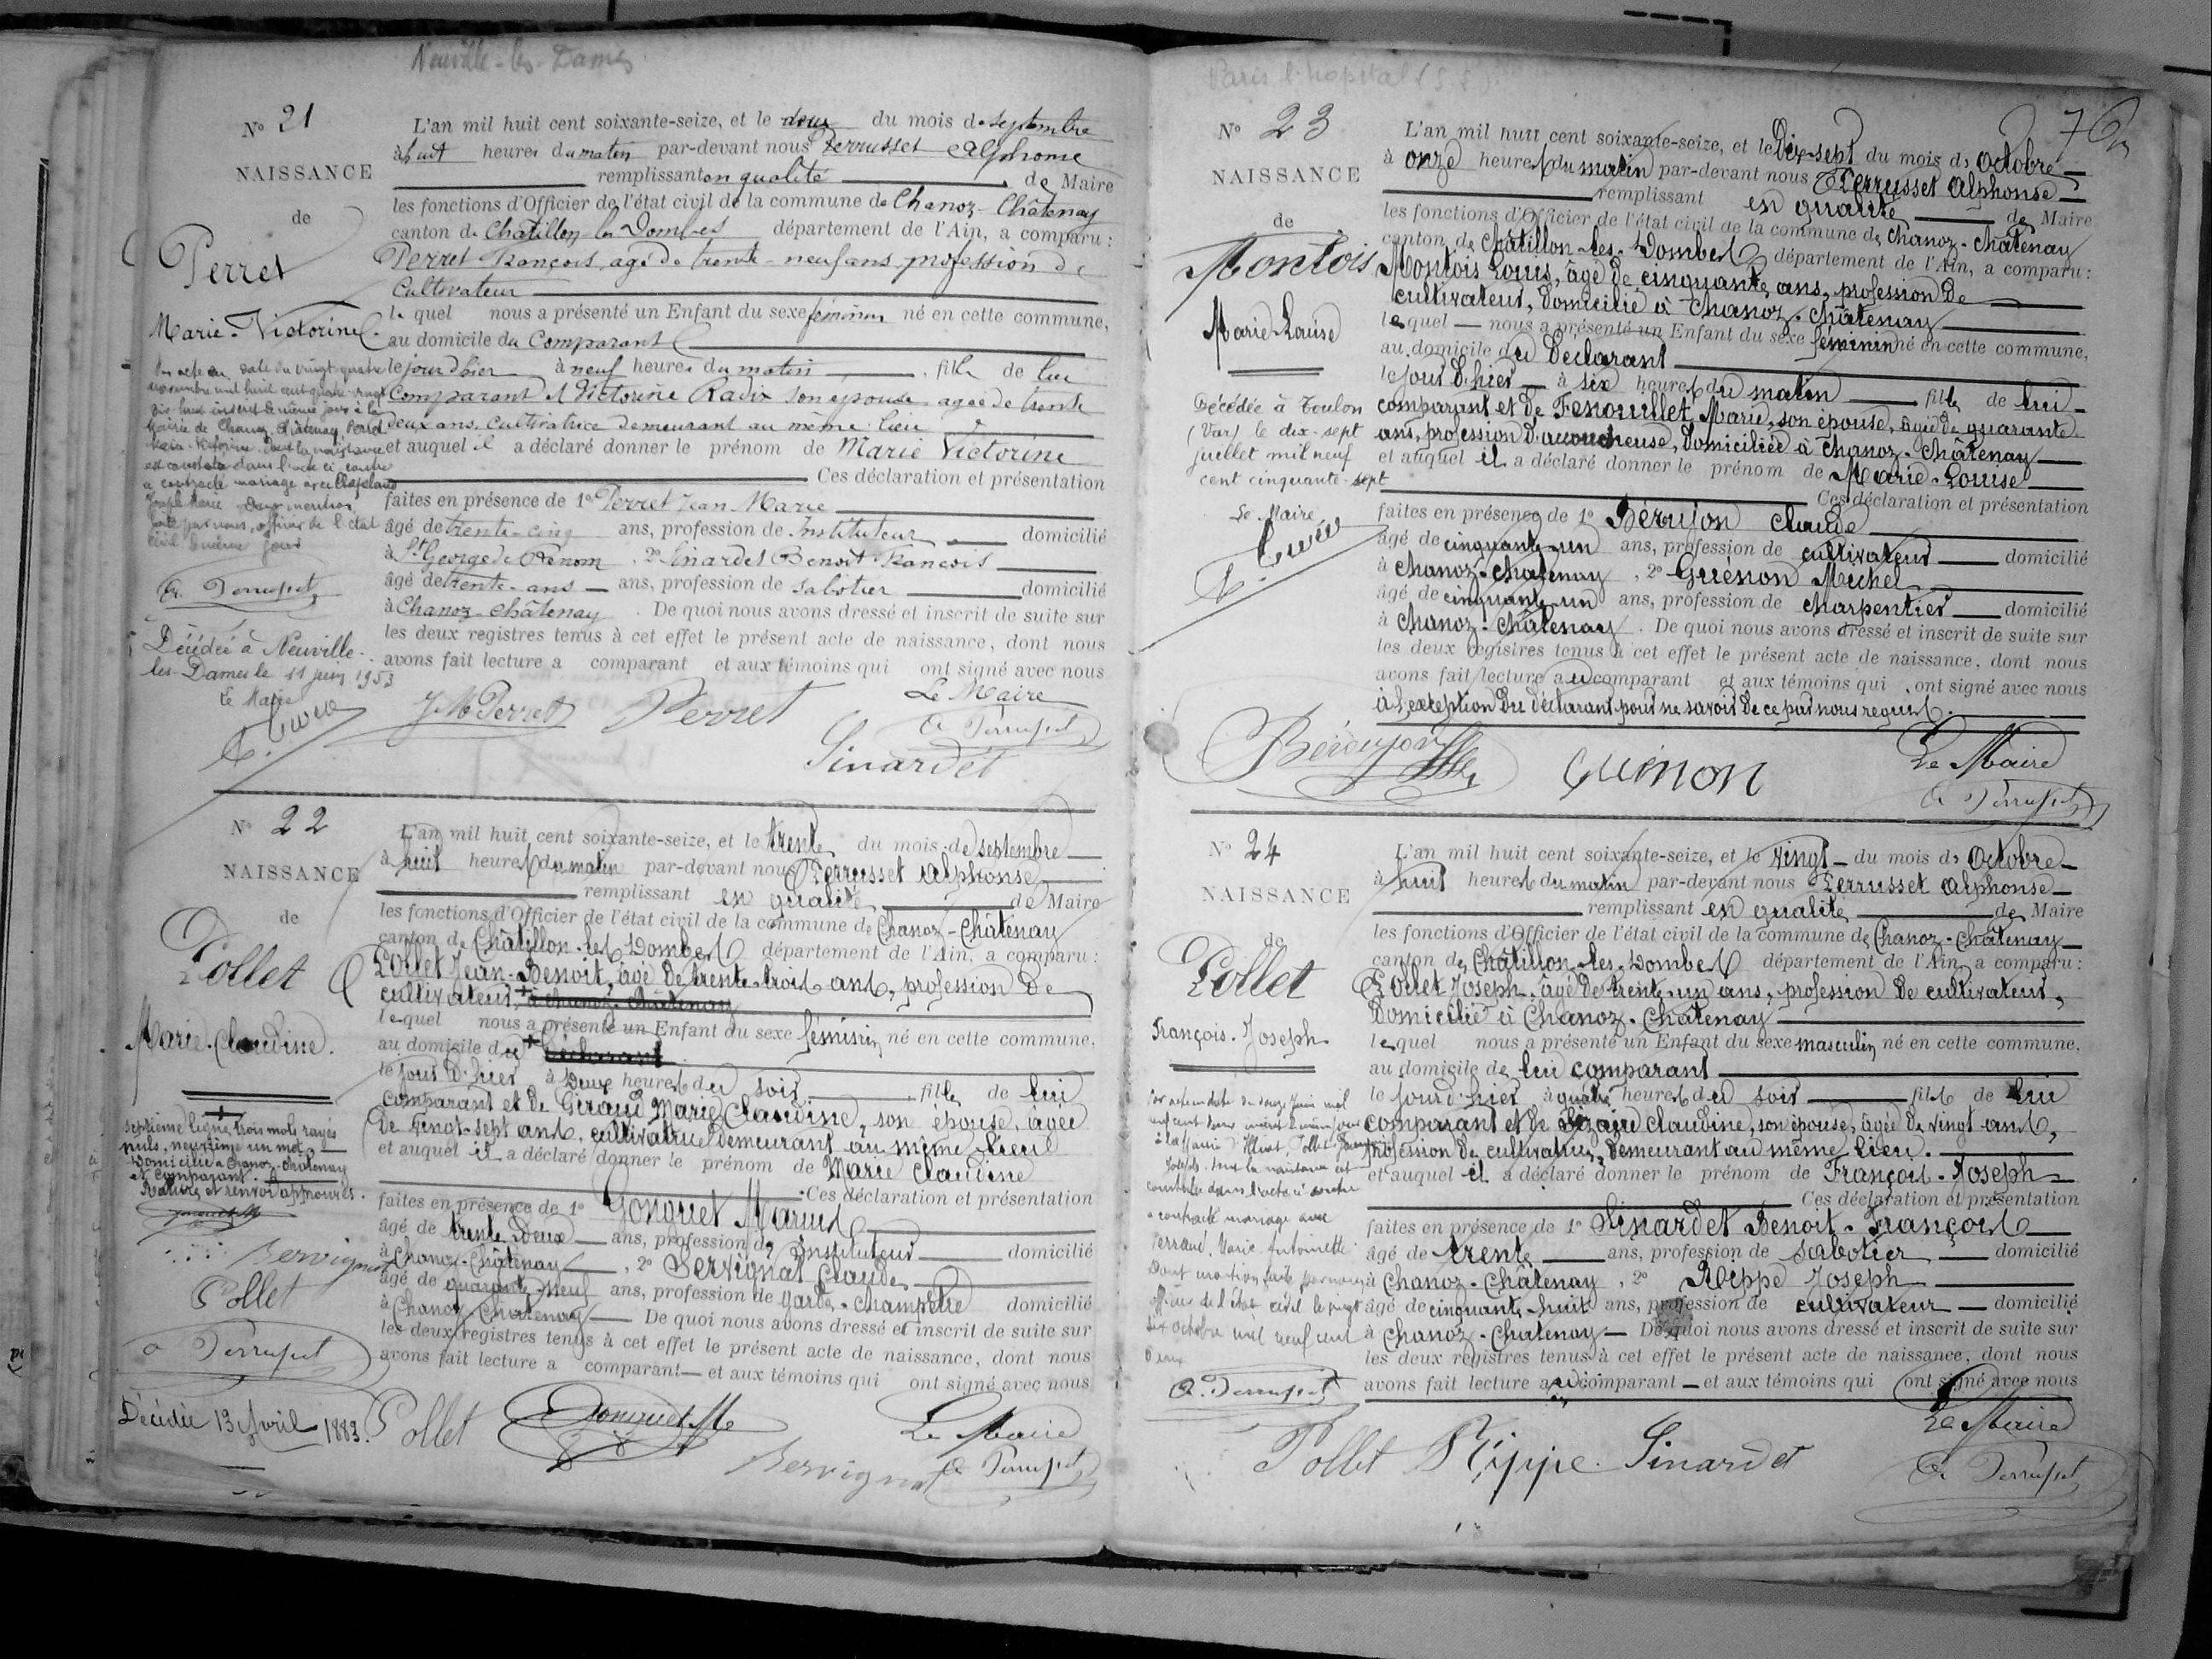 Neuville-les-Dames
N° 21
NAISSANCE
de
Perret
Marie-Victorine
L'an mil huit cent soixante-seize, et le deux du mois de septembre
à huit heures du matin par-devant nous Perrusset Alphonse
remplissant en qualité de Maire
les fonctions d'Officier de l'état civil de la commune de Chanoz-Châtenay
canton de Châtillon les Dombes département de l'Ain, a comparu :
Perret François, agé de trente-neuf ans profession de
Cultivateur
lequel nous a présenté un Enfant du sexe féminin né en cette commune,
au domicile du Comparant
le jour d'hier à neuf heures du matin fille de lui
Comparant et Victorine Radix son épouse agée de trente
deux ans, Cultivatrice demeurant au même lieu
et auquel il a déclaré donner le prénom de Marie Victorine
Ces déclaration et présentation
faites en présence de 1° Perret Jean Marie
âgé de trente-cinq ans, profession de Instituteur domicilié
à St George de Renom, 2° Sinardet Benoit François
âgé de trente-ans ans, profession de sabotier domicilié
à Chanoz-Châtenay. De quoi nous avons dressé et inscrit de suite sur
les deux registres tenus à cet effet le présent acte de naissance, dont nous
avons fait lecture a comparant et aux témoins qui ont signé avec nous
Par acte en date du vingt quatre
novembre mil huit cent quatre-vingt
dix-huit inscrit le même jour à la
Mairie de Chanoz-Châtenay Perret
Marie-Victorine dont la naissance
est constatée dans l'acte ci-contre
a contracté mariage avec
Joseph Marie Dont mention
faite par nous, officier de l'état
civil le même jour
A. Perrusset
Décédée à Neuville-
les-Dames le 11 juin 1953
Le Maire
J M Perret Perret Le Maire
A Perrusset
Sinardet
N° 22
NAISSANCE
de
Pollet
Marie-Claudine.
L'an mil huit cent soixante-seize, et le trente du mois de septembre
à huit heures du matin par-devant nous Perrusset Alphonse
remplissant en qualité de Maire
les fonctions d'Officier de l'état civil de la commune de Chanoz-Châtenay
canton de Châtillon-les-Dombes département de l'Ain, a comparu :
Pollet Jean-Benoit, âgé de trente-trois ans, profession de
cultivateur, + à Chanoz-Châtenay
lequel nous a présenté un Enfant du sexe féminin né en cette commune,
au domicile du + déclarant
le jour d'hier à deux heures du soir fille de lui
comparant et de Giraud Marie Claudine, son épouse, âgée
de vingt-sept ans, cultivatrice demeurant au même lieu
et auquel il a déclaré donner le prénom de Marie Claudine
Ces déclaration et présentation
faites en présence de 1° Gonguet Marius
âgé de trente-deux ans, profession de Instituteur domicilié
à Chanoz-Châtenay, 2° Servignat Claude
âgé de quarante-neuf ans, profession de garde-champêtre domicilié
à Chanoz-Châtenay De quoi nous avons dressé et inscrit de suite sur
les deux registres tenus à cet effet le présent acte de naissance, dont nous
avons fait lecture a comparant et aux témoins qui ont signé avec nous
+
septième ligne, trois mots rayés
nuls, neuvième un mot,
+ domicilié à Chanoz-Châtenay
+ comparant.
Rature et renvoi approuvés.
Servignat
Pollet
A Perrusset
Décédée 13 Avril 1883.
Pollet Gonguet M Le Maire
Servignat A Perrusset
Paris l'hopital (S.L.)
76
N° 23
NAISSANCE
de
Montois
Marie Louise
L'an mil huit cent soixante-seize, et le Dix-sept du mois de Octobre
à onze heures du matin par-devant nous Perrusset Alphonse
remplissant en qualité de Maire
les fonctions d'Officier de l'état civil de la commune de Chanoz-Châtenay
canton de Châtillon-les-Dombes département de l'Ain, a comparu :
Montois Louis, âgé de cinquante ans, profession de
cultivateur, domicilié à Chanoz-Châtenay
lequel nous a présenté un Enfant du sexe féminin né en cette commune,
au domicile du Déclarant
le jour d'hier à six heures du matin fille de lui
comparant et de Fenouillet Marie, son épouse, âgée de quarante
ans, profession d'accoucheuse, domiciliée à Chanoz-Châtenay
et auquel il a déclaré donner le prénom de Marie-Louise
Ces déclaration et présentation
faites en présence de 1° Bérujon Claude
âgé de cinquante-un ans, profession de cultivateur domicilié
à Chanoz-Chatenay, 2° Guénon Michel
âgé de cinquante-un ans, profession de charpentier domicilié
à Chanoz-Châtenay. De quoi nous avons dressé et inscrit de suite sur
les deux registres tenus à cet effet le présent acte de naissance, dont nous
avons fait lecture au comparant et aux témoins qui ont signé avec nous
à l'exception du déclarant pour ne savoir de ce par nous requis.
Décédée à Toulon
(Var) le dix-sept
juillet mil neuf
cent cinquante-sept
Le Maire
Bérujon Guénon Le Maire
A Perrusset
N° 24
NAISSANCE
de
Pollet
François-Joseph
L'an mil huit cent soixante-seize, et le vingt du mois de Octobre
à huit heures du matin par-devant nous Perrusset Alphonse
remplissant en qualité de Maire
les fonctions d'Officier de l'état civil de la commune de Chanoz-Châtenay
canton de Châtillon-les-Dombes département de l'Ain, a comparu :
Pollet Joseph, âgé de trente-un ans, profession de cultivateur,
domicilié à Chanoz-Châtenay
lequel nous a présenté un Enfant du sexe masculin né en cette commune,
au domicile de lui comparant
le jour d'hier à quatre heures du soir fils de lui
comparant et de Claudine, son épouse, âgée de vingt ans,
profession de cultivatrice, demeurant au même lieu.
et auquel il a déclaré donner le prénom de François-Joseph
Ces déclaration et présentation
faites en présence de 1° Sinardet Benoit-François
âgé de trente ans, profession de sabotier domicilié
à Chanoz-Châtenay, 2° Rippe Joseph
âgé de cinquante-huit ans, profession de cultivateur domicilié
à Chanoz-Chatenay De quoi nous avons dressé et inscrit de suite sur
les deux registres tenus à cet effet le présent acte de naissance, dont nous
avons fait lecture au comparant et aux témoins qui ont signé avec nous
Par acte en date du Juin mil
neuf cent deux inscrit le même jour
à la Mairie Pollet François
Joseph, dont la naissance est
constatée dans l'acte ci-contre
a contracté mariage avec
Perraud, Marie Antoinette
Dont mention faite par nous
officier de l'état civil le vingt
six octobre mil neuf cent
deux
A. Perrusset
Pollet Rippe Sinardet
Le Maire
A Perrusset